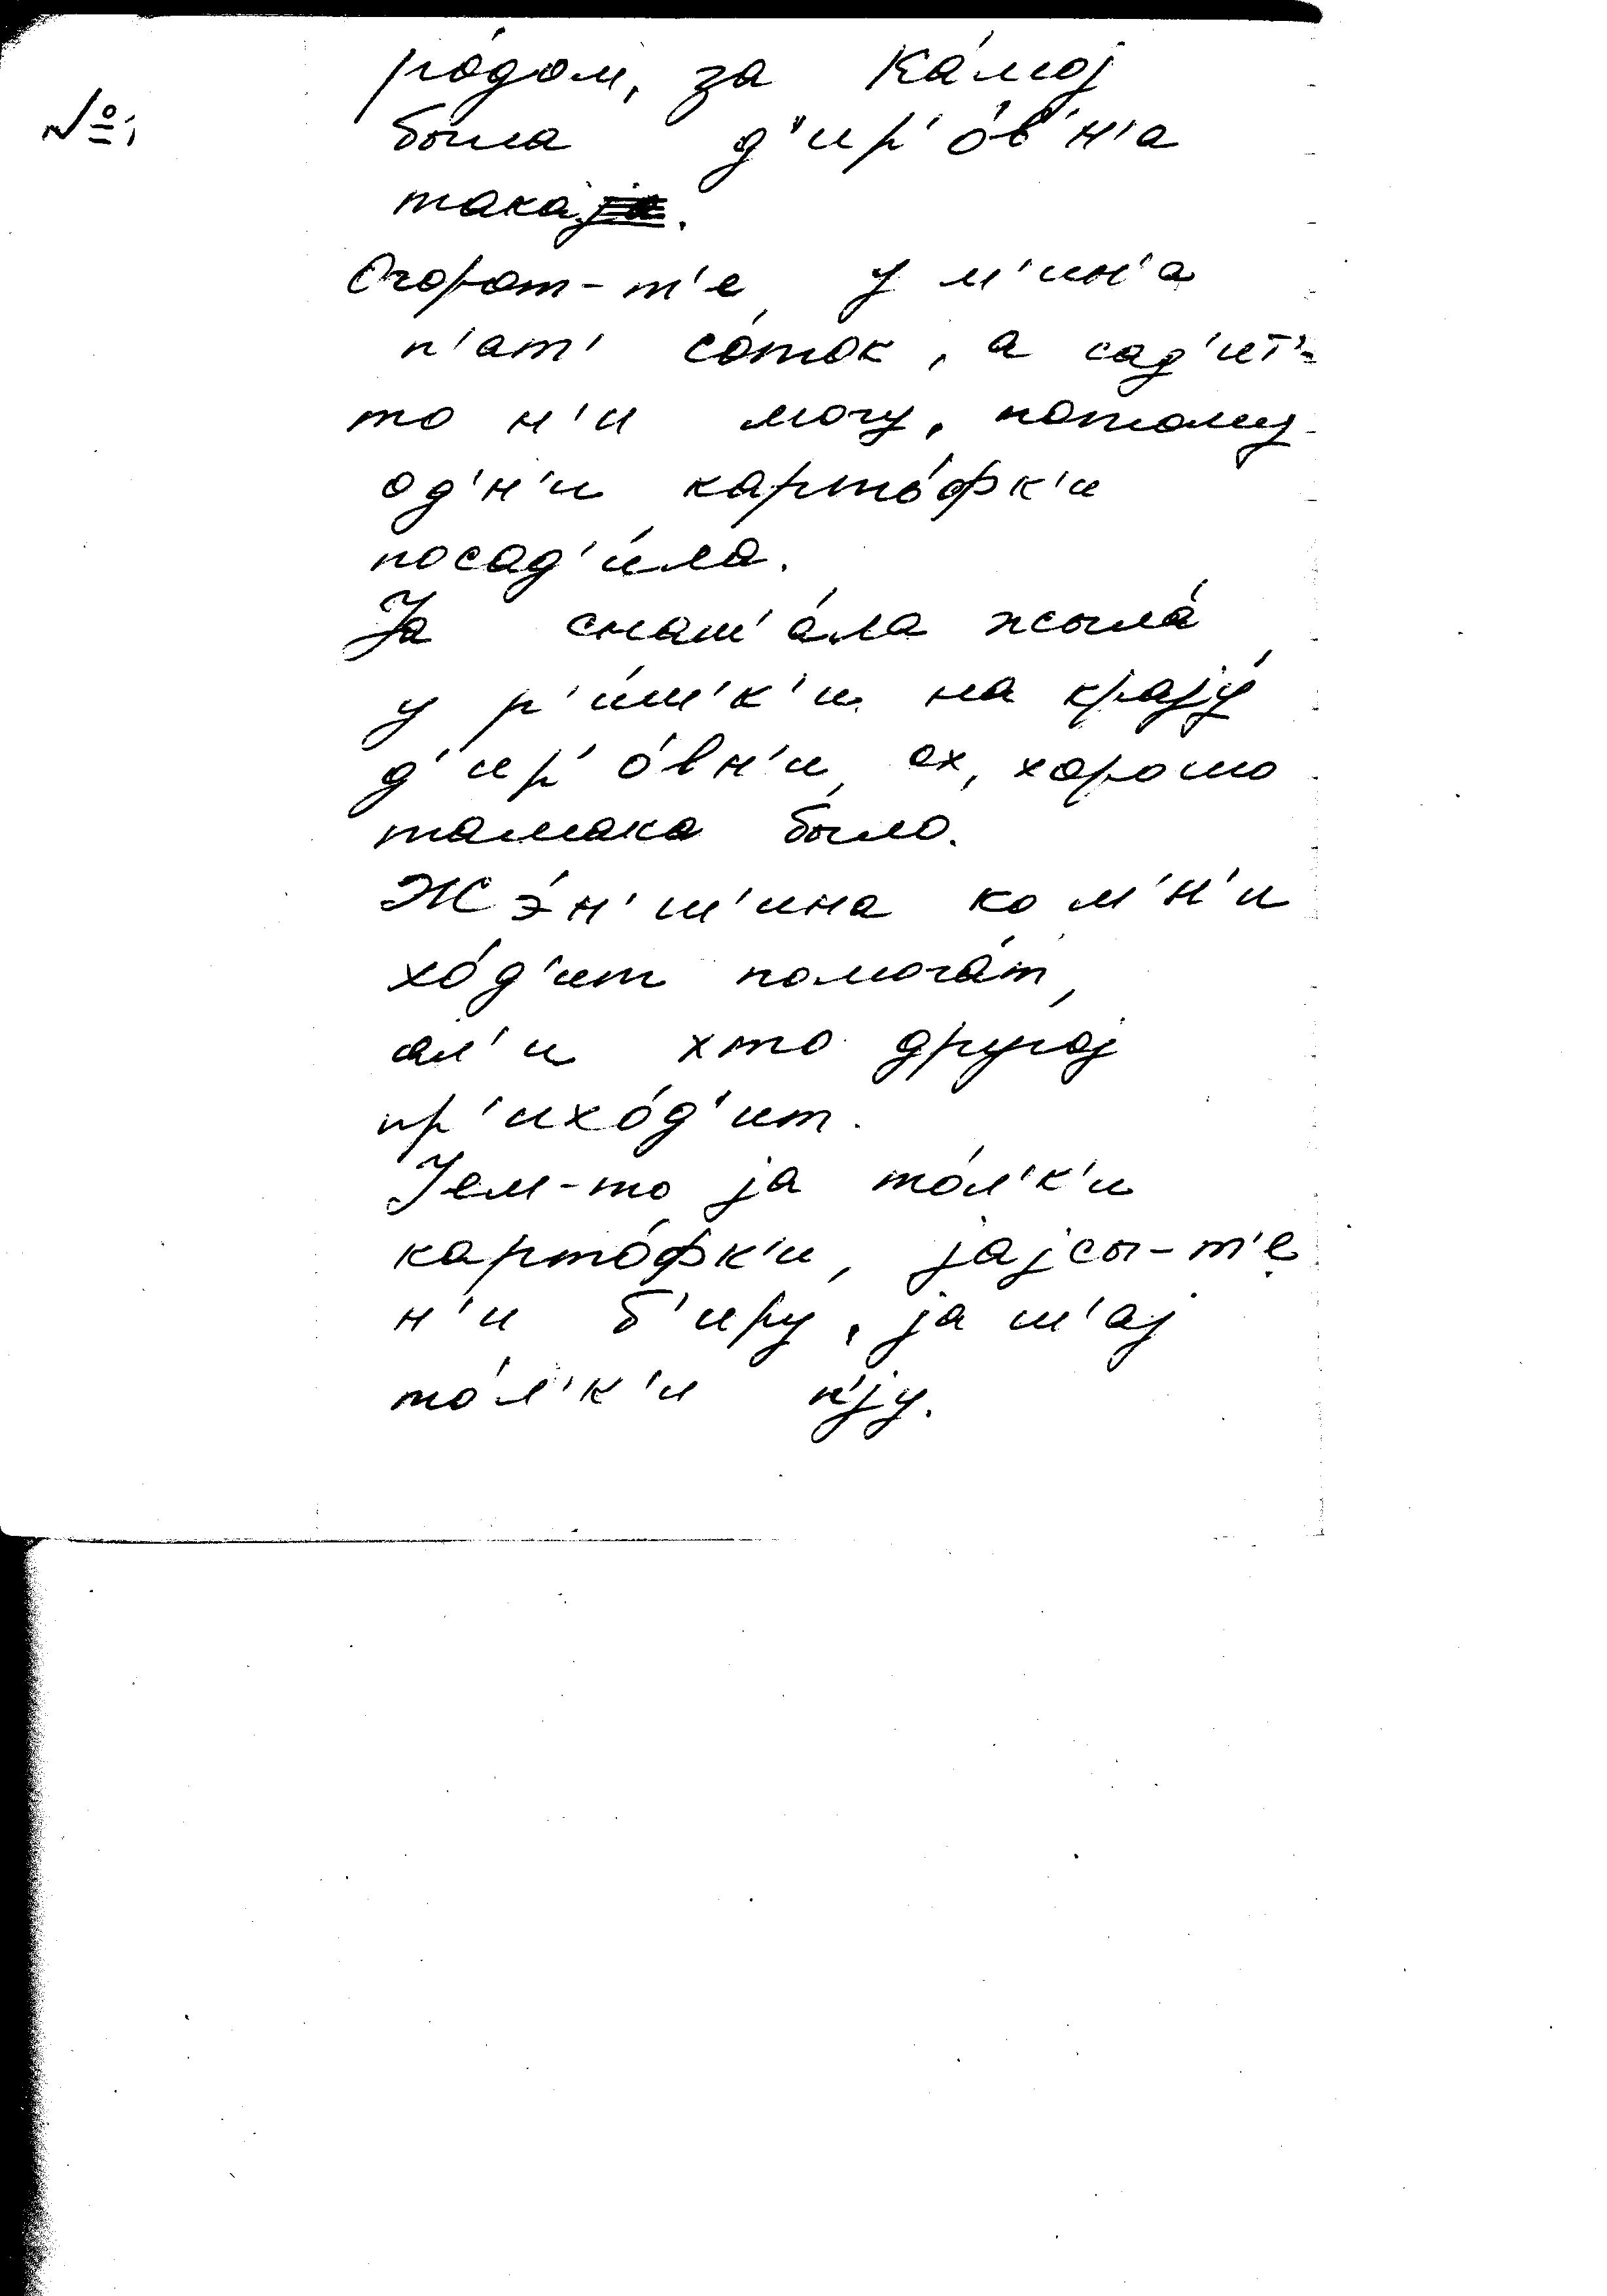 ро́дом, за Ка́мој
№1 была д'ир'о́в'н'а
така́.
Огорот-т'е у м'ин'а
п'ат' со́ток, а сад'ит'-
то н'и могу, потому
од'н'и карто́фк'и
посад'и́ла.
Ја снаш'а́ла жыла́
у р'и́ш'к'и на крају́
д'ир'о́вн'и, ох, хорошо
тамака было.
Жэ́н'ш'ина ко м'н'и
хо́д'ит помога́т,
ал'и хто другој
пр'ихо́д'ит.
Јем-то ја то́л'к'и
карто́фк'и, јајсы-т'е
н'и б'иру, ја ш'ај
то́л'к'и п'ју.